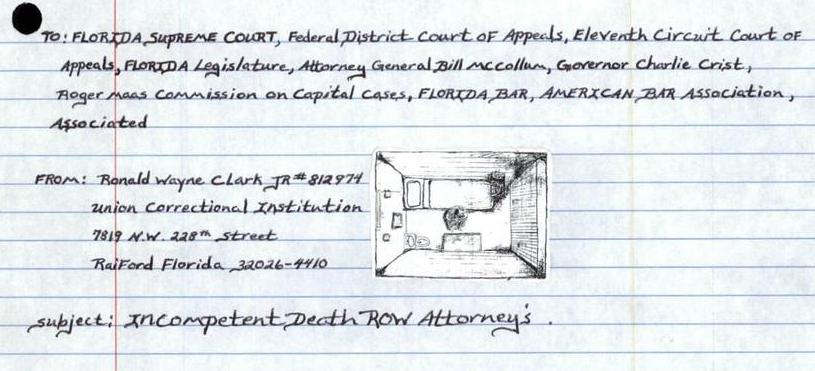 TO: FLORIDA SUPREME COURT, Federal District Court of Appeals, Eleventh Circuit Court of
Appeals, FLORIDA Legislature, Attorney General Bill McCollum, Governor Charlie Crist,
Roger Maas Commission on Capital Cases, FLORIDA BAR, AMERICAN BAR Association,
Associated
FROM: Ronald Wayne Clark JR # 812974
Union Correctional Institution
7819 N.W. 228th Street
Raiford Florida 32026-4410
subject: Incompetent Death Row Attorney's .